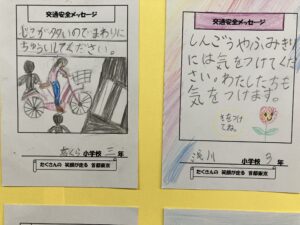 交通安全メッセージ
じこが多いので、まわりに
ちゅういしてください。
小学校 三 年
たくさんの 笑顔が走る 首都東京
交通安全メッセージ
しんごうやふみきり
には気をつけてくだ
さい。わたしたちも
気をつけます。
気をつけ
てね。
小学校 3 年
たくさんの 笑顔が走る 首都東京